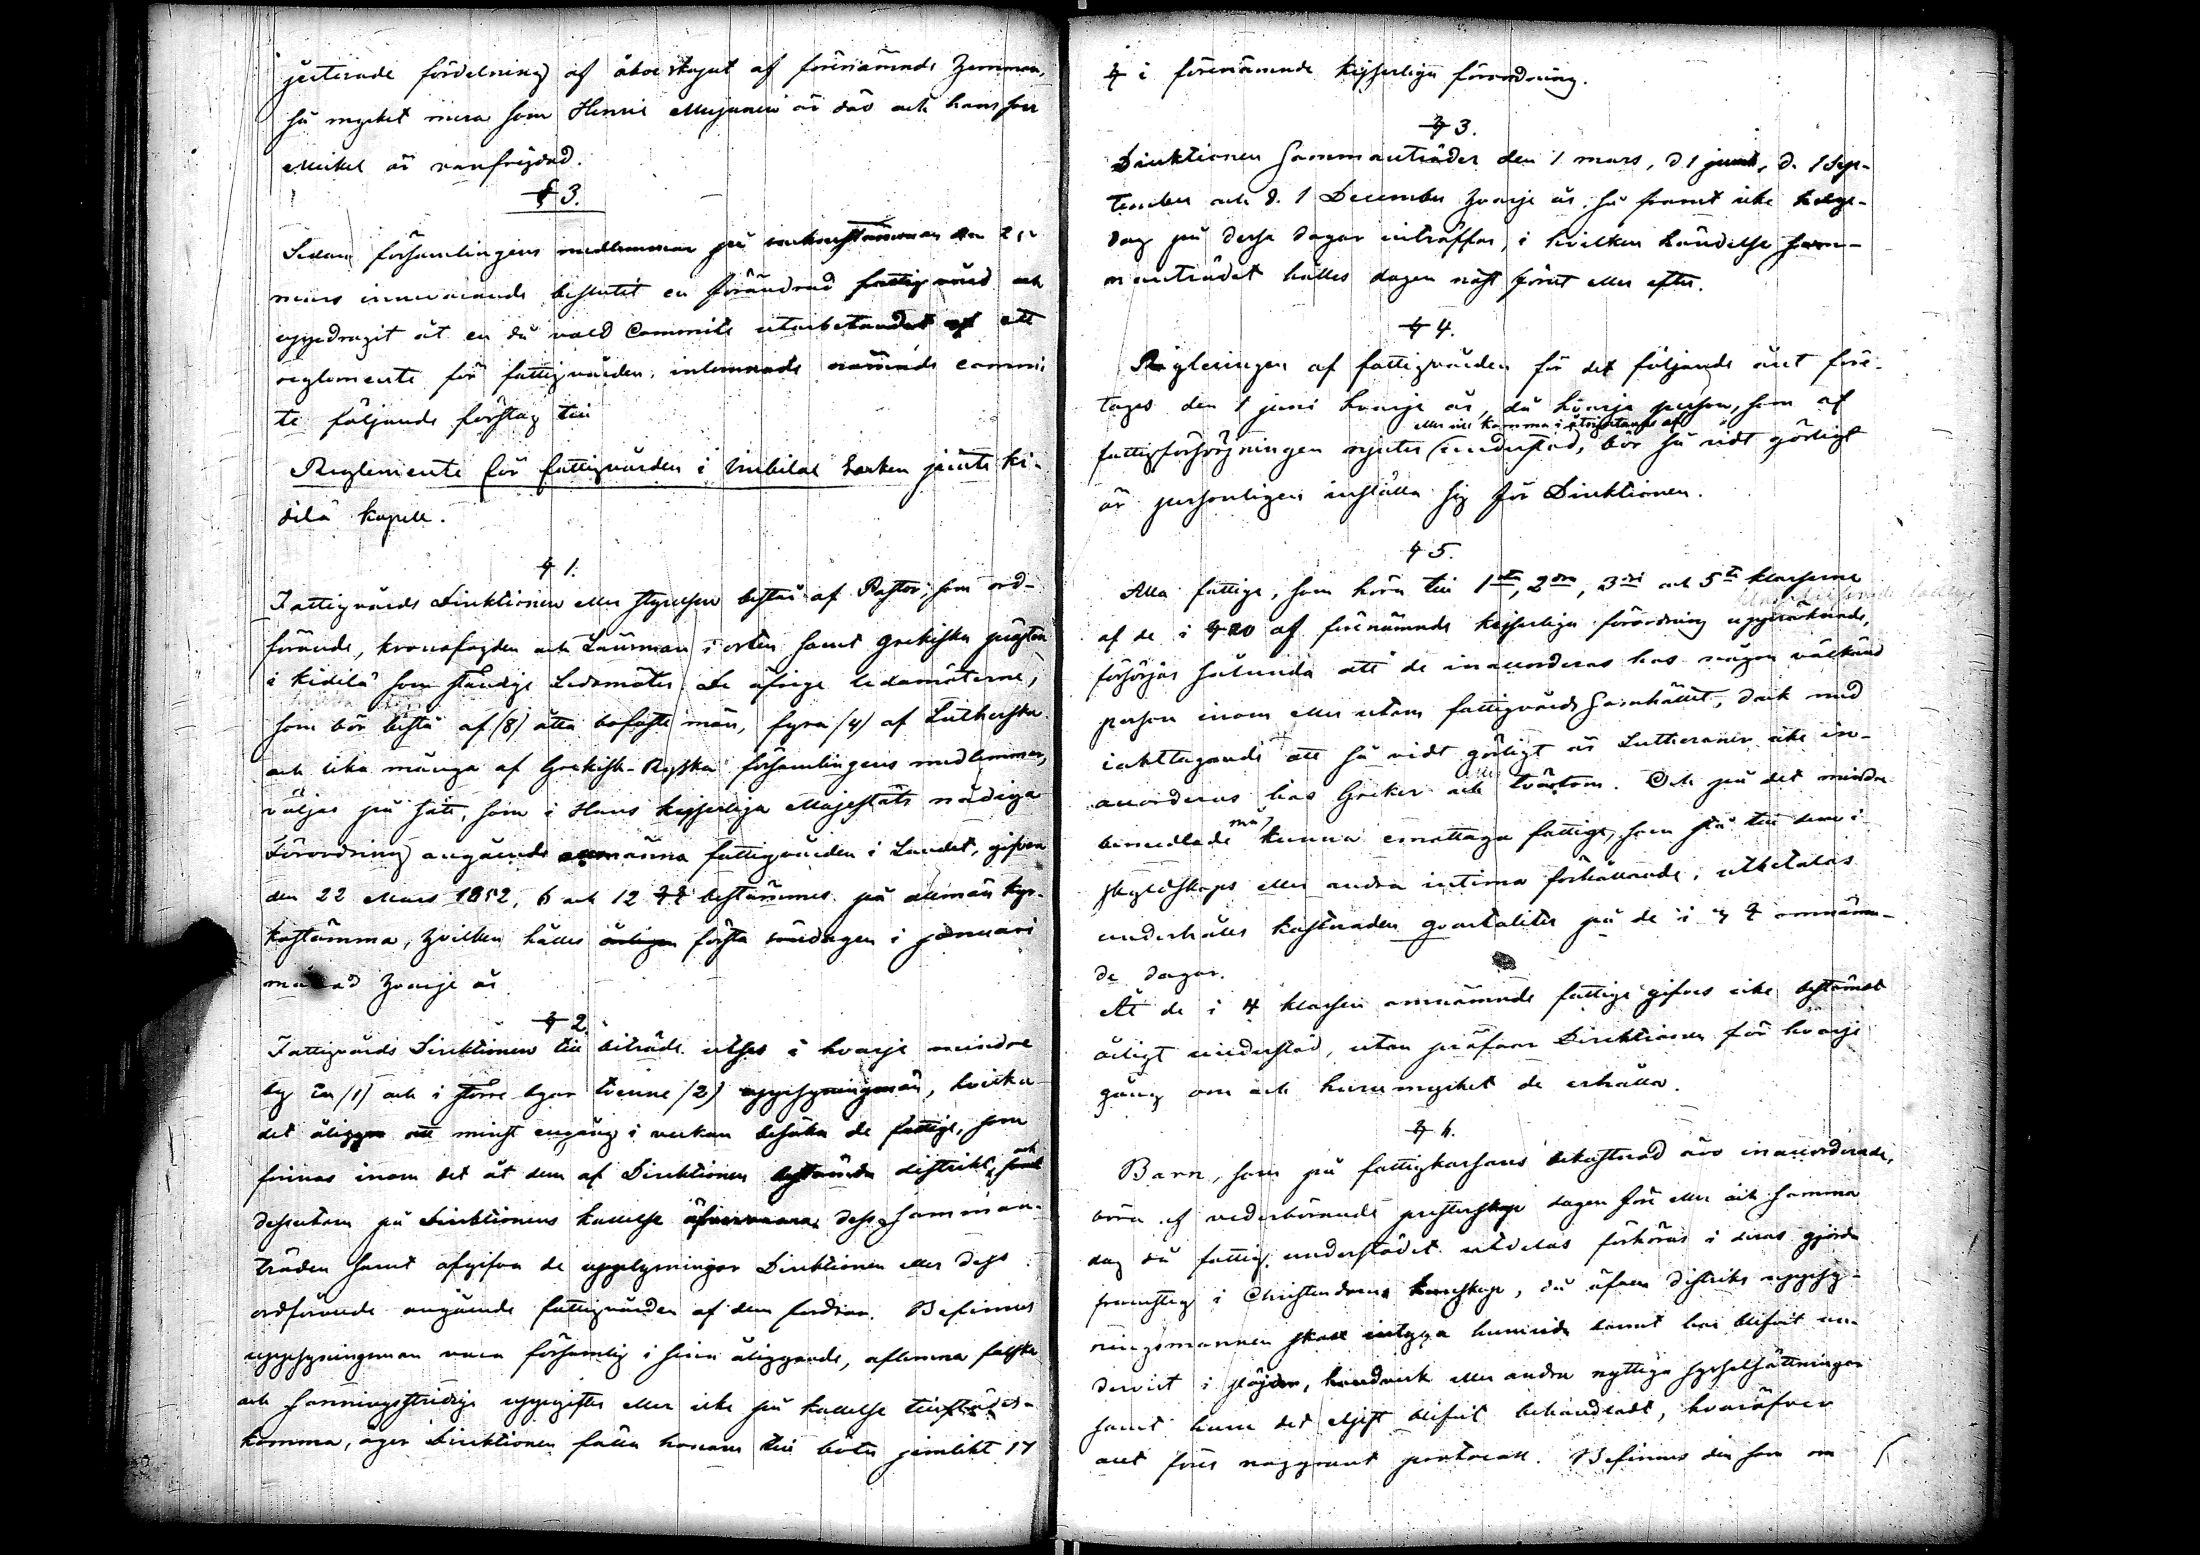 justerade fördelning af åboeskapet af förenämnde hemman,
så mycket mera som Henric är död och hans son
Mickel är vanfrägdad.
§ 3.
Sedan församlingens medlemmar på sockenstämman den 25
mars innevarande beslutit en förändrad fattigvård och
uppdragit åt en då vald Committé utarbetandet af ett
reglemente för fattigvården, inlemnade nämnde commi
te följande förslag till
Reglemente för fattigvården i Imbilax Socken jämte Ki-
delä kapell.
§ 1.
Fattigvårds Direktionen eller styrelsen består af Pastor, som ord-
förande, kronofogden och Länsman i orten samt grekiska presten
i Kidelä som ständige Ledamöter. De öfrige ledamöterne,
som bör bestå af (8) åtta bofaste män, fyra (4) af Lutherska
och lika många af Grekisk-Ryska församlingens medlemmar,
väljas på sätt, som i Hans kejserliga Majestäts nådiga
Förordning angående allmänna fattigvården i Landet, gifven
den 22 Mars 1852, 6 och 12 §§ bestämmes på allmän kyr-
kostämma, hvilken hålles årligen första söndagen i januari
månad hvarje år
§ 2.
Fattigvårds Direktionen till biträde utses i hvarje mindre
by En (1) och i större byar tvenne (2) uppsyningsmän, hvilka
det åligger att minst engång i veckan besöka de fattige, som
finnas inom det åt dem af Direktionen bestämda distrikt, och
dessutom på Direktionens kallelse öfvervara dess samman-
träden samt afgifva de upplysningar Direktionen eller dess
ordförande angående fattigvården af dem fordrar. Befinnes
uppsyningsman vara försumlig i sina åligganden, aflemna falska
och sanningsstridige uppgifter eller icke på kallelse tillstädes-
komma, äger Direktionen fälla honom till böter jemlikt 17
§ i förenämnde kejserliga förordning.
§ 3.
Direktionen sammanträder den 1 mars, d 1 juni, d. 1 Sep-
tember och d. 1 December hvarje år, så framt icke helge-
dag på dessa dagar inträffar, i hvilken händelse sam-
manträdet hålles dagen näst förut eller efter.
§ 4.
Regleringen af fattigvården för det följande året före-
tages den 1 juni hvarje år, då hvarje person, som af
eller vill komma i åtnjutande af
fattigförsörjningen njuter understöd, bör så vidt görligt
är personligen inställa sig för Direktionen.
§ 5.
Alla fattige, som höra till 1sta, 2dra, 3dje och 5te klasserne
af de i § 20 af förenämnde kejserliga förordning uppräknade,
försörjas sålunda att de inaccorderas hos någon välkänd
person inom eller utom fattigvårds samhället, dock med
iakttagande att så vidt görligt är Lutheraner icke in-
accorderas hos Greker eller tvärtom. Och på det mindre
bemedlade må kunna emottaga fattige, som stå till dem i
skyldskaps eller andra intima förhållande, utbetalas
underhålls kostnaden qvartaliter på de i 3 § omnämn-
de dagar.
Åt de i 4 klassen omnämnde fattige gifves icke bestämdt
årligt understöd, utan pröfvar Direktionen för hvarje
gång om och huru mycket de erhålla.
§ 6.
Barn, som på fattigkassans bekostnad äro inaccorderade,
böra af vederbörande presterskap dagen före eller och samma
dag då fattig understödet utdelas förhöras i deras gjorda
framsteg i Christendoms kunskap, då äfven distrikts uppsy-
ningsmannen skall intyga huruvida barnet har blifvit un-
dervist i slöjder, handverk eller andra nyttiga sysselsättningar
samt huru det eljest blifvit behandladt, hvaröfver
allt föres noggrant protocoll. Befinnes den som om